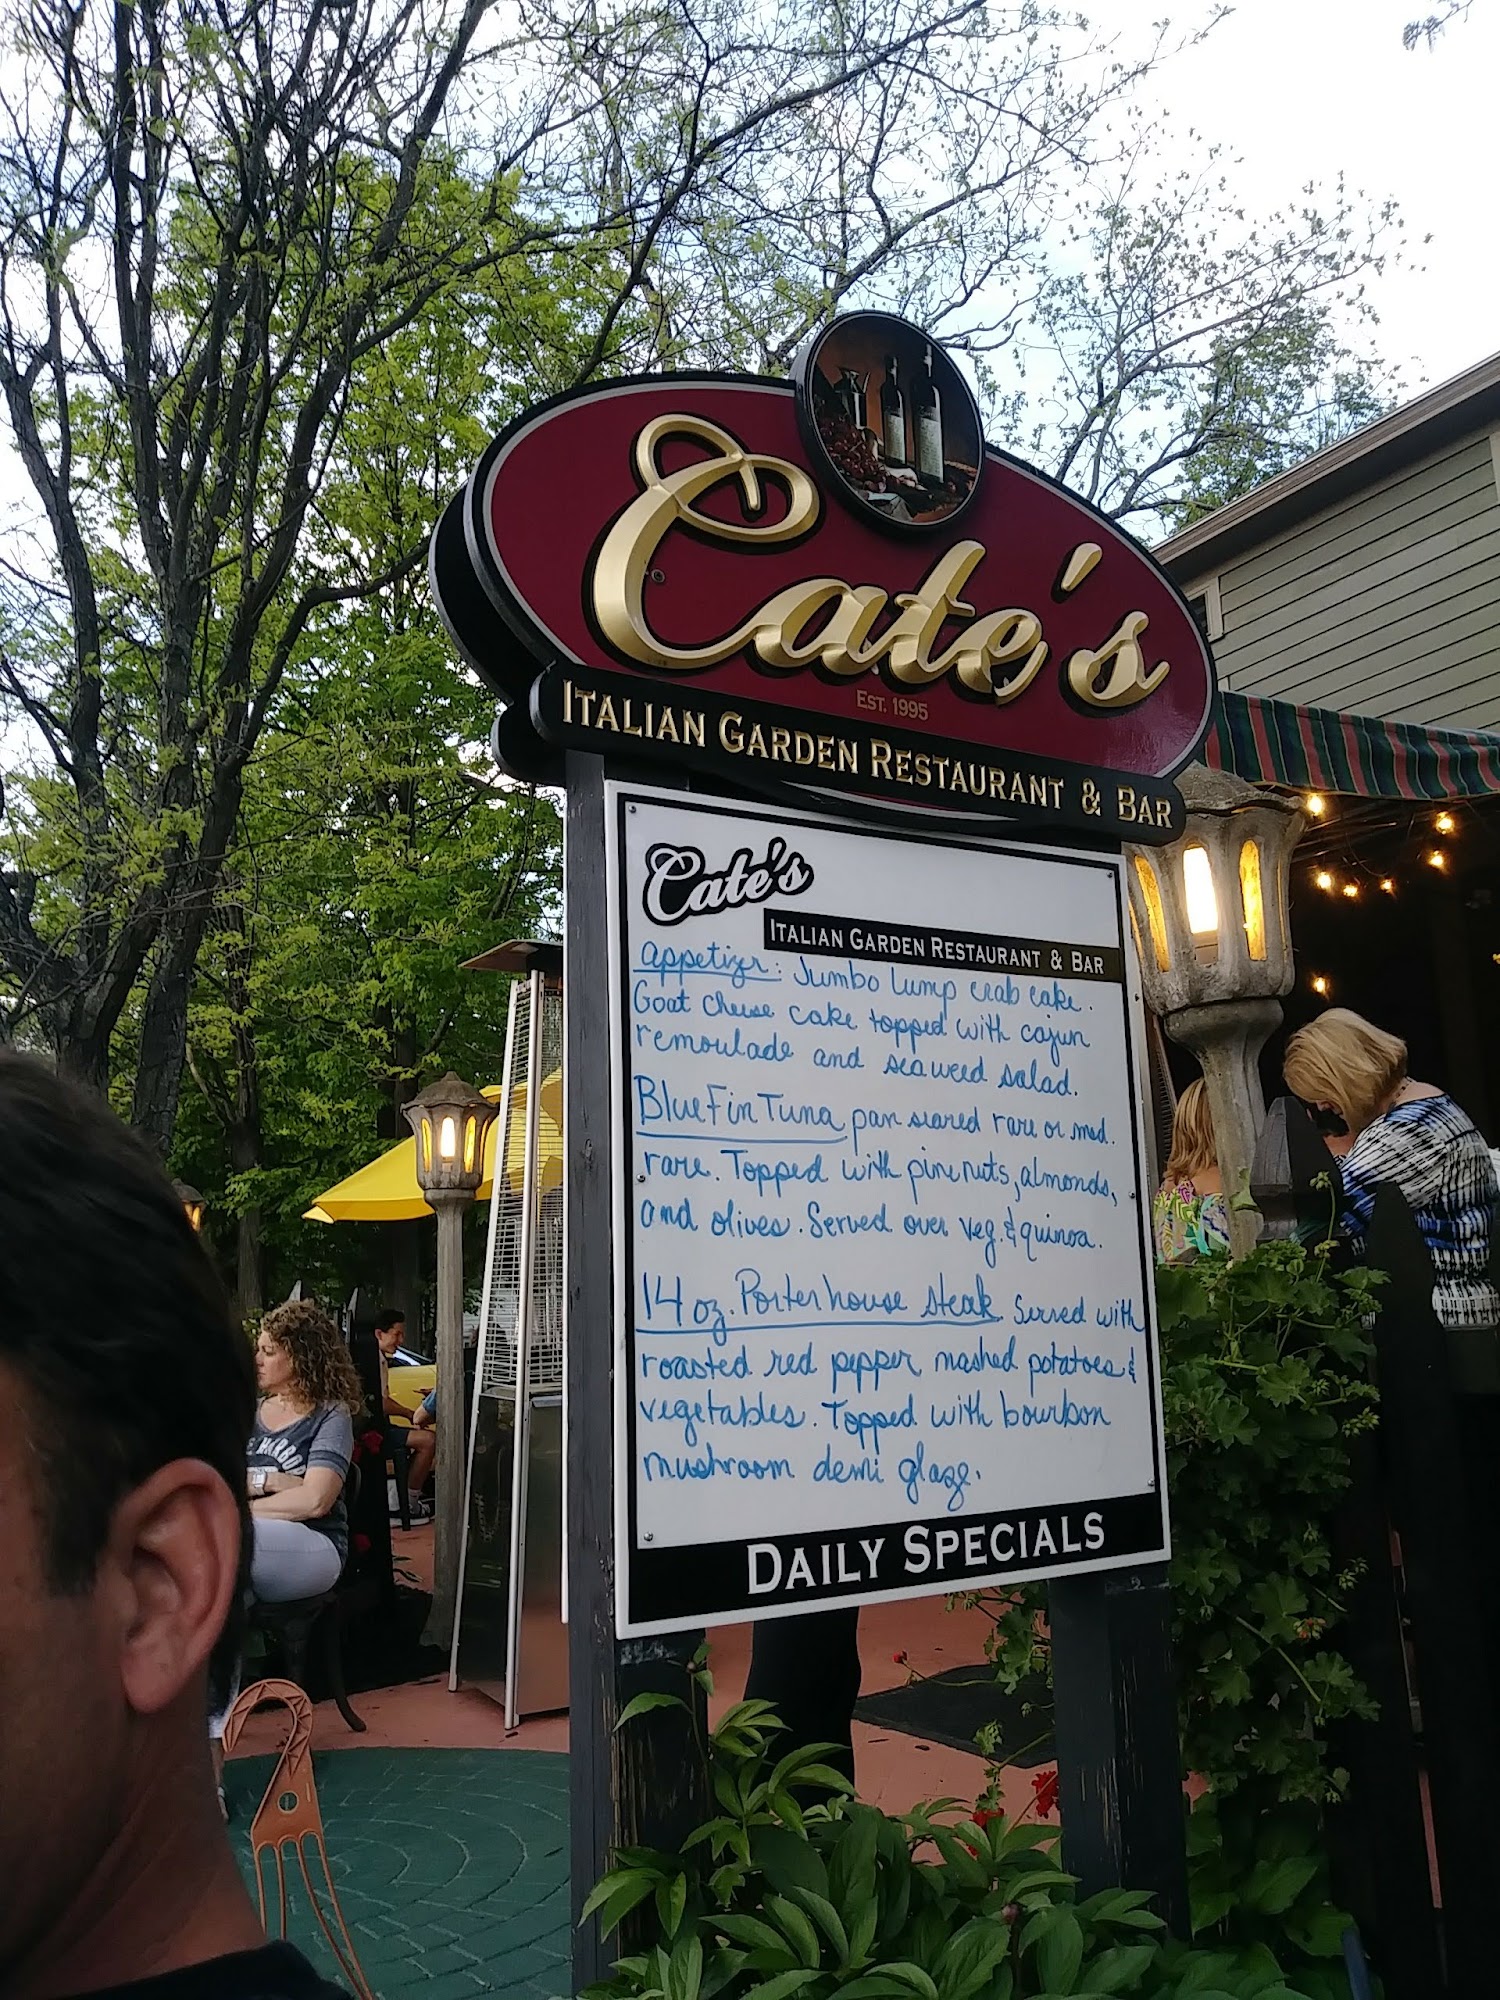 Cate's
EST. 1995
ITALIAN GARDEN RESTAURANT & BAR
Cate's
ITALIAN GARDEN RESTAURANT & BAR
appetizr: Jumbo lump crab cake.
Goat cheese cake topped with cajun
remoulade and seaweed salad.
BlueFin Tuna pan seared rare or med.
rare. Topped with pinenuts, almonds,
and olives. Served over veg. & quinoa.
14 oz. Porterhouse steak served with
roasted red pepper mashed potatoes &
vegetables. Topped with bourbon
mushroom demi glaze.
DAILY SPECIALS